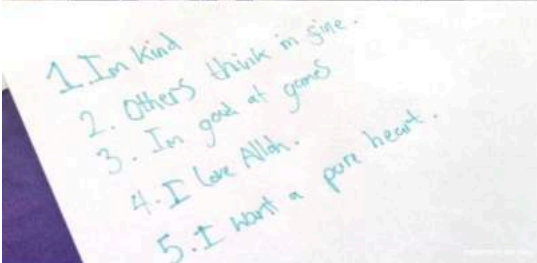 1. Im kind
2. Others think im fine.
3. Im good at games
4. I love Allah.
5. I want a pure heart.